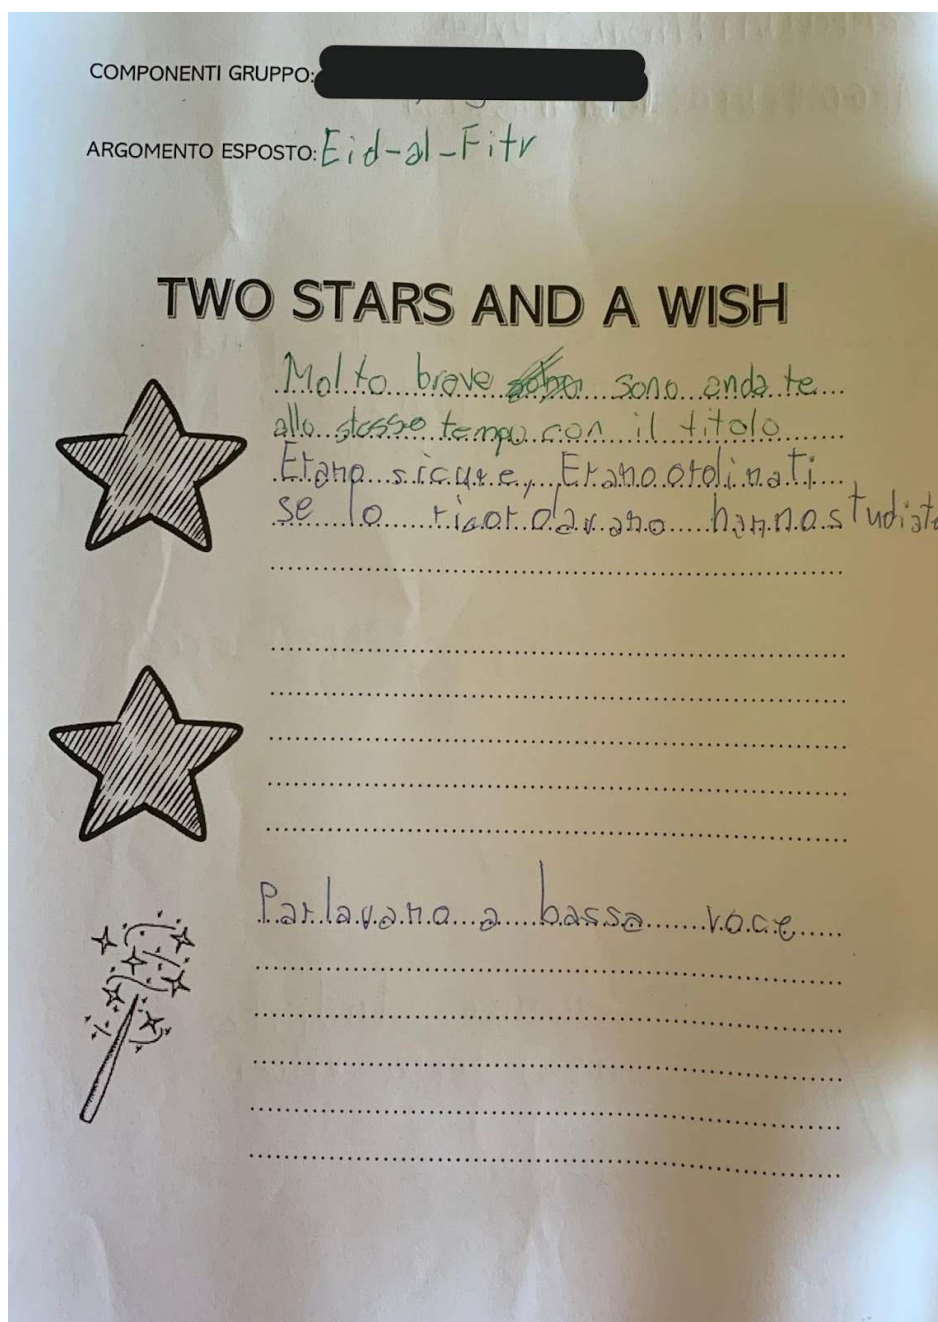 COMPONENTI GRUPPO:
ARGOMENTO ESPOSTO: Eid-al-Fitr
TWO STARS AND A WISH
Molto brave sono andate
allo stesso tempo con il titolo
Erano sicure, Erano ordinati
se lo ricordavano hanno studiato
Parlavano a bassa voce